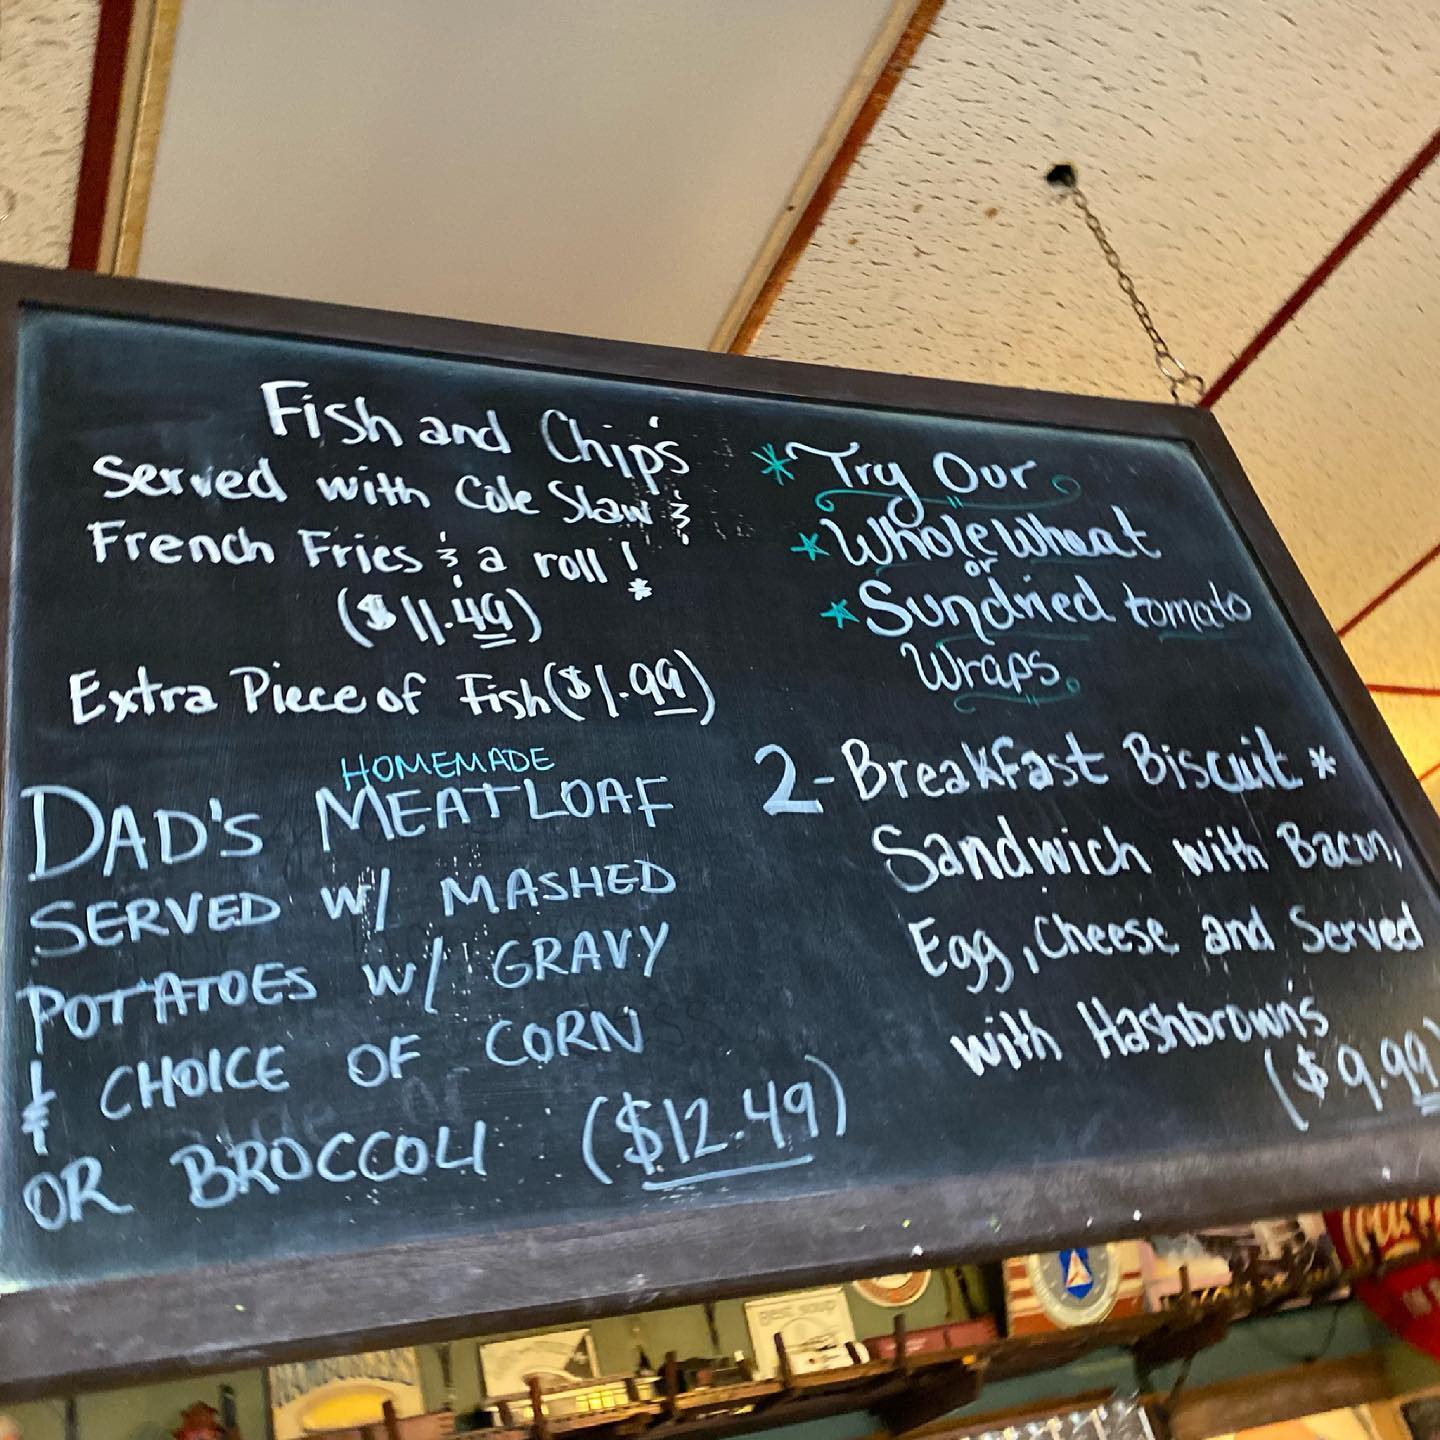 Fish and Chip's
Served with Cole Slaw &
French Fries & a roll!
*
($11.49)
Extra Piece of Fish ($1.99)
HOMEMADE
DAD'S MEATLOAF
SERVED W/ MASHED
POTATOES W/ GRAVY
& CHOICE OF CORN
OR BROCCOLI ($12.49)
*Try Our
*Whole Wheat
or
*Sundried tomato
Wraps
2-Breakfast Biscuit *
Sandwich with Bacon,
Egg, Cheese and Served
with Hashbrown's
($9.99)
HAMBURGERS